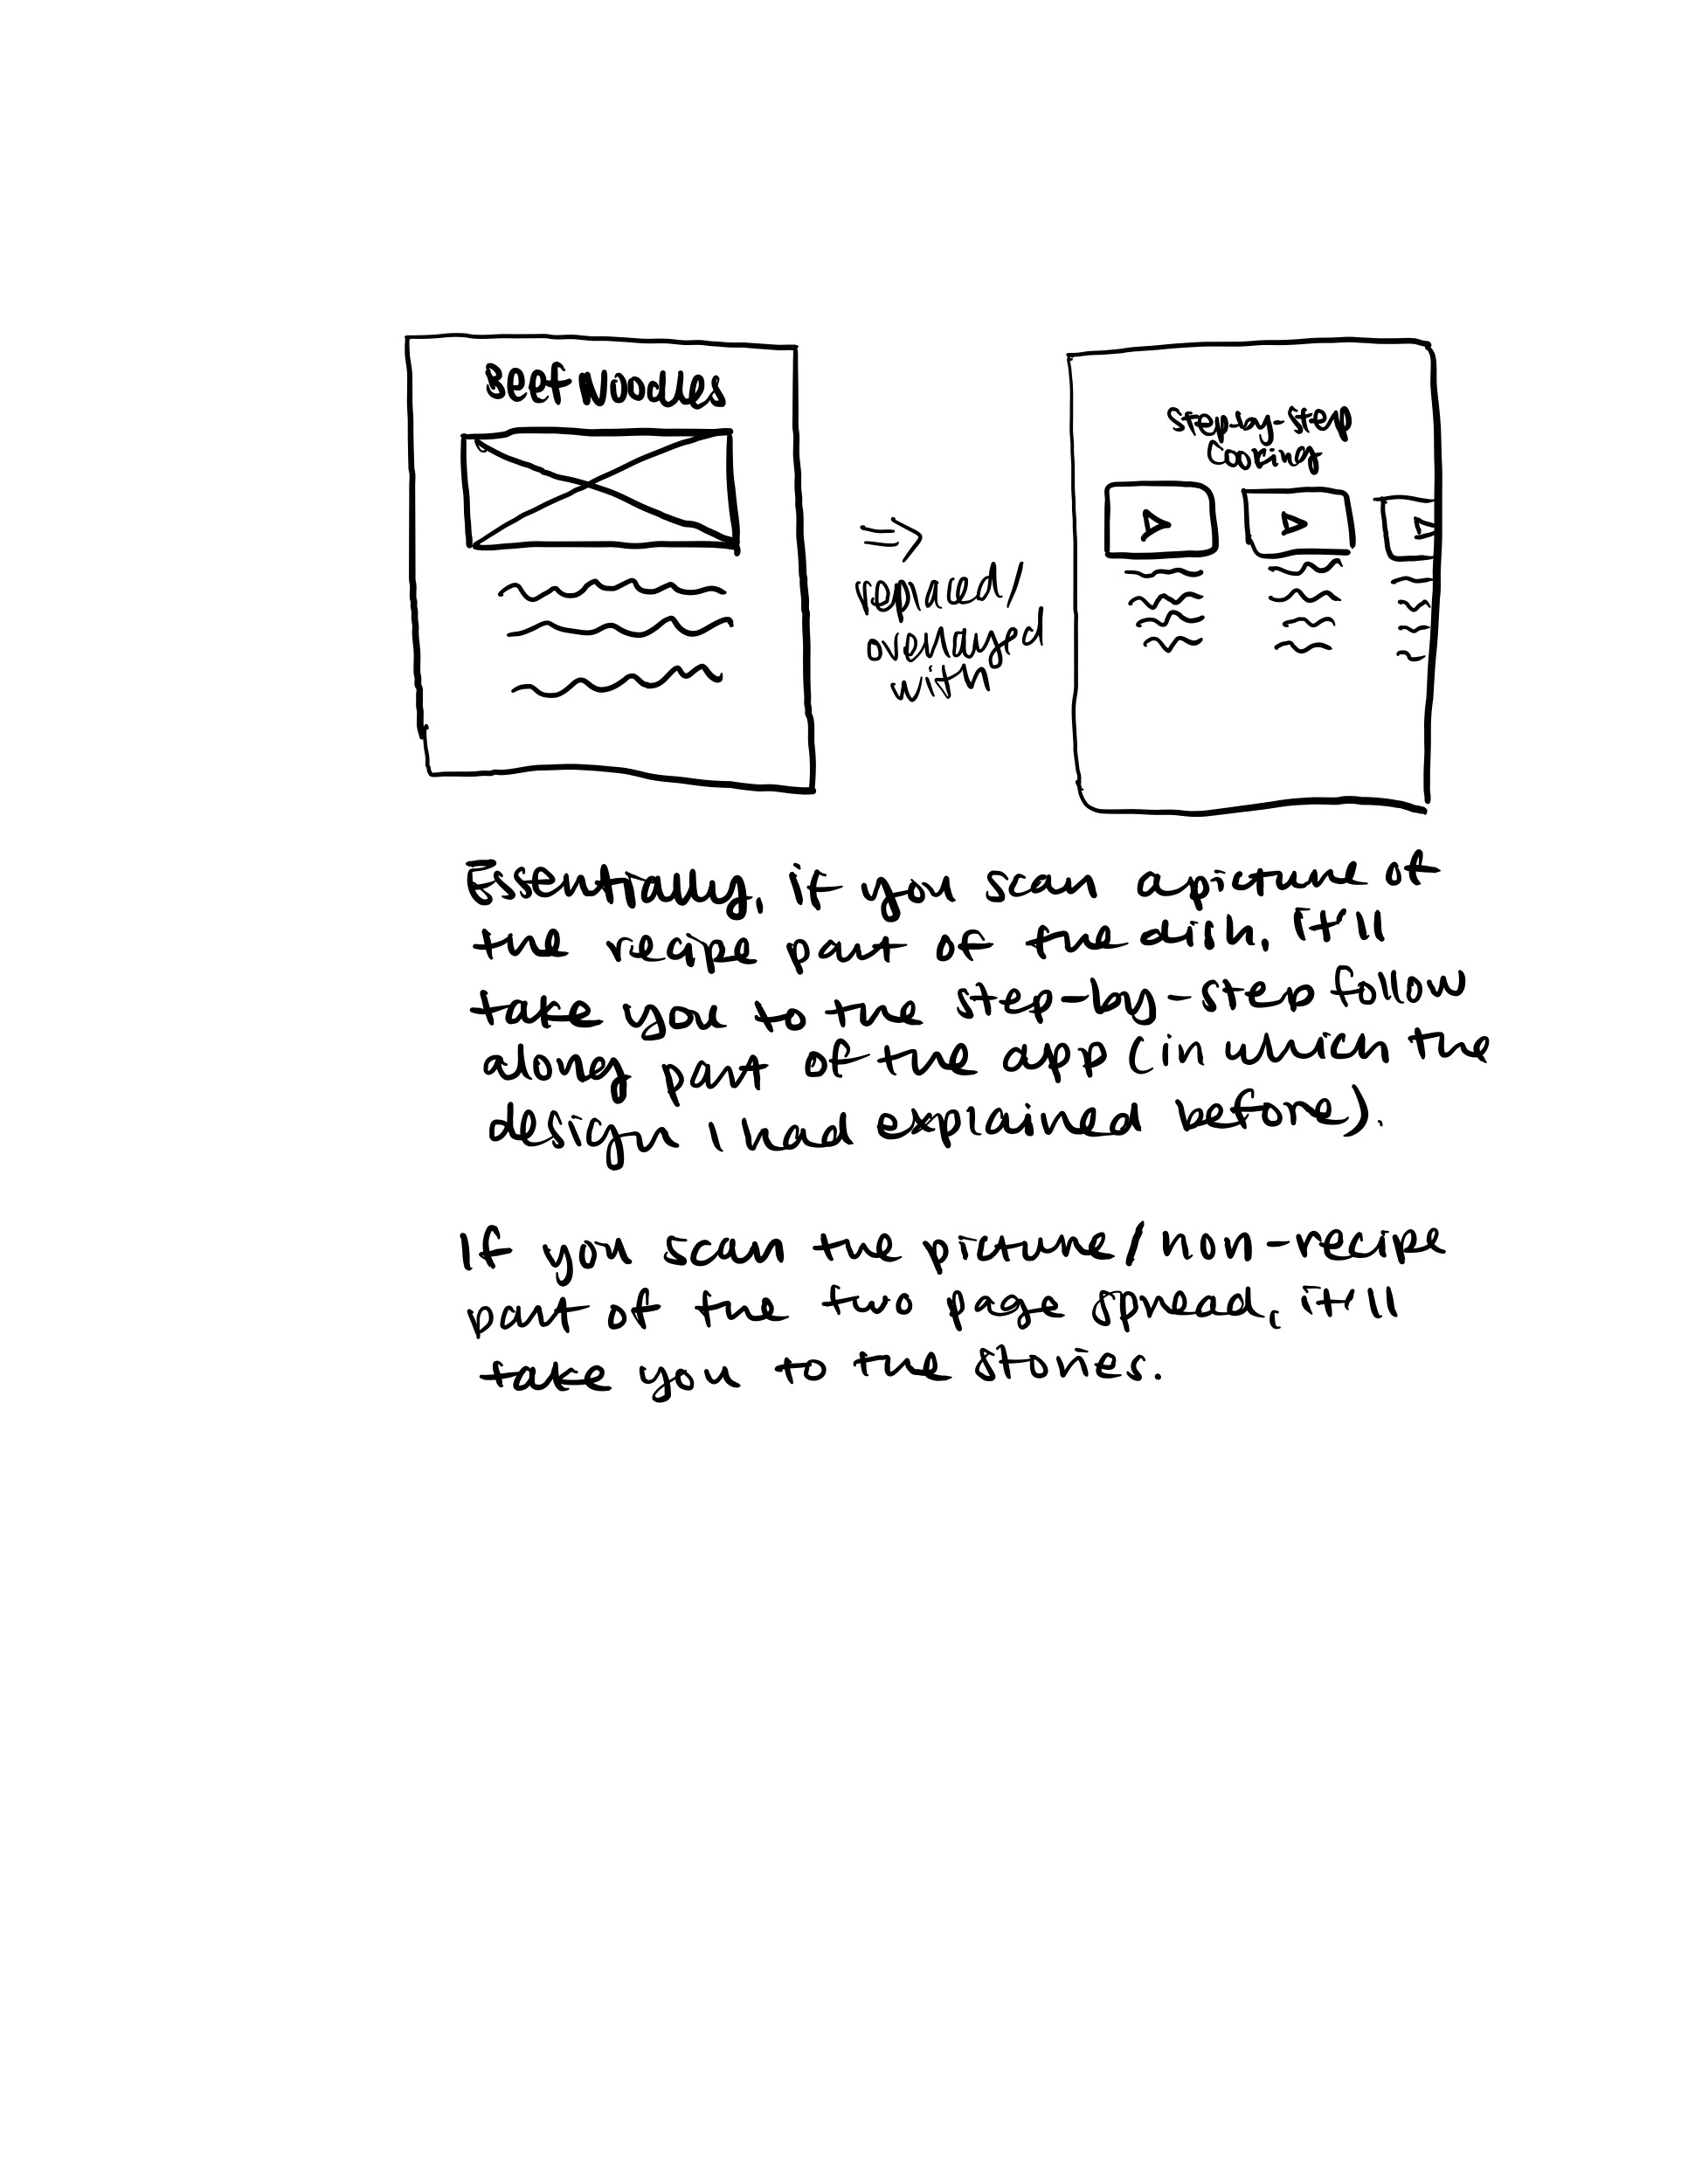 Beef Noodles
=> replaced/
overlayed
with
Step-by-Step
Cooking
Essentially, if you scan a picture of
the recipe part of the dish, it'll
take you to the step-by-step follow
along part of the app (in which the
design I had explained before).
If you scan the picture/non-recipe
part of the two page spread, it'll
take you to the stories.